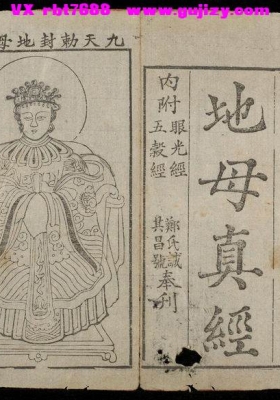 VX rbt7688 www.gujizy.com
九天勅封地母
地母真經
內附眼光經
五穀經
鄭氏誠
其昌號
奉刊